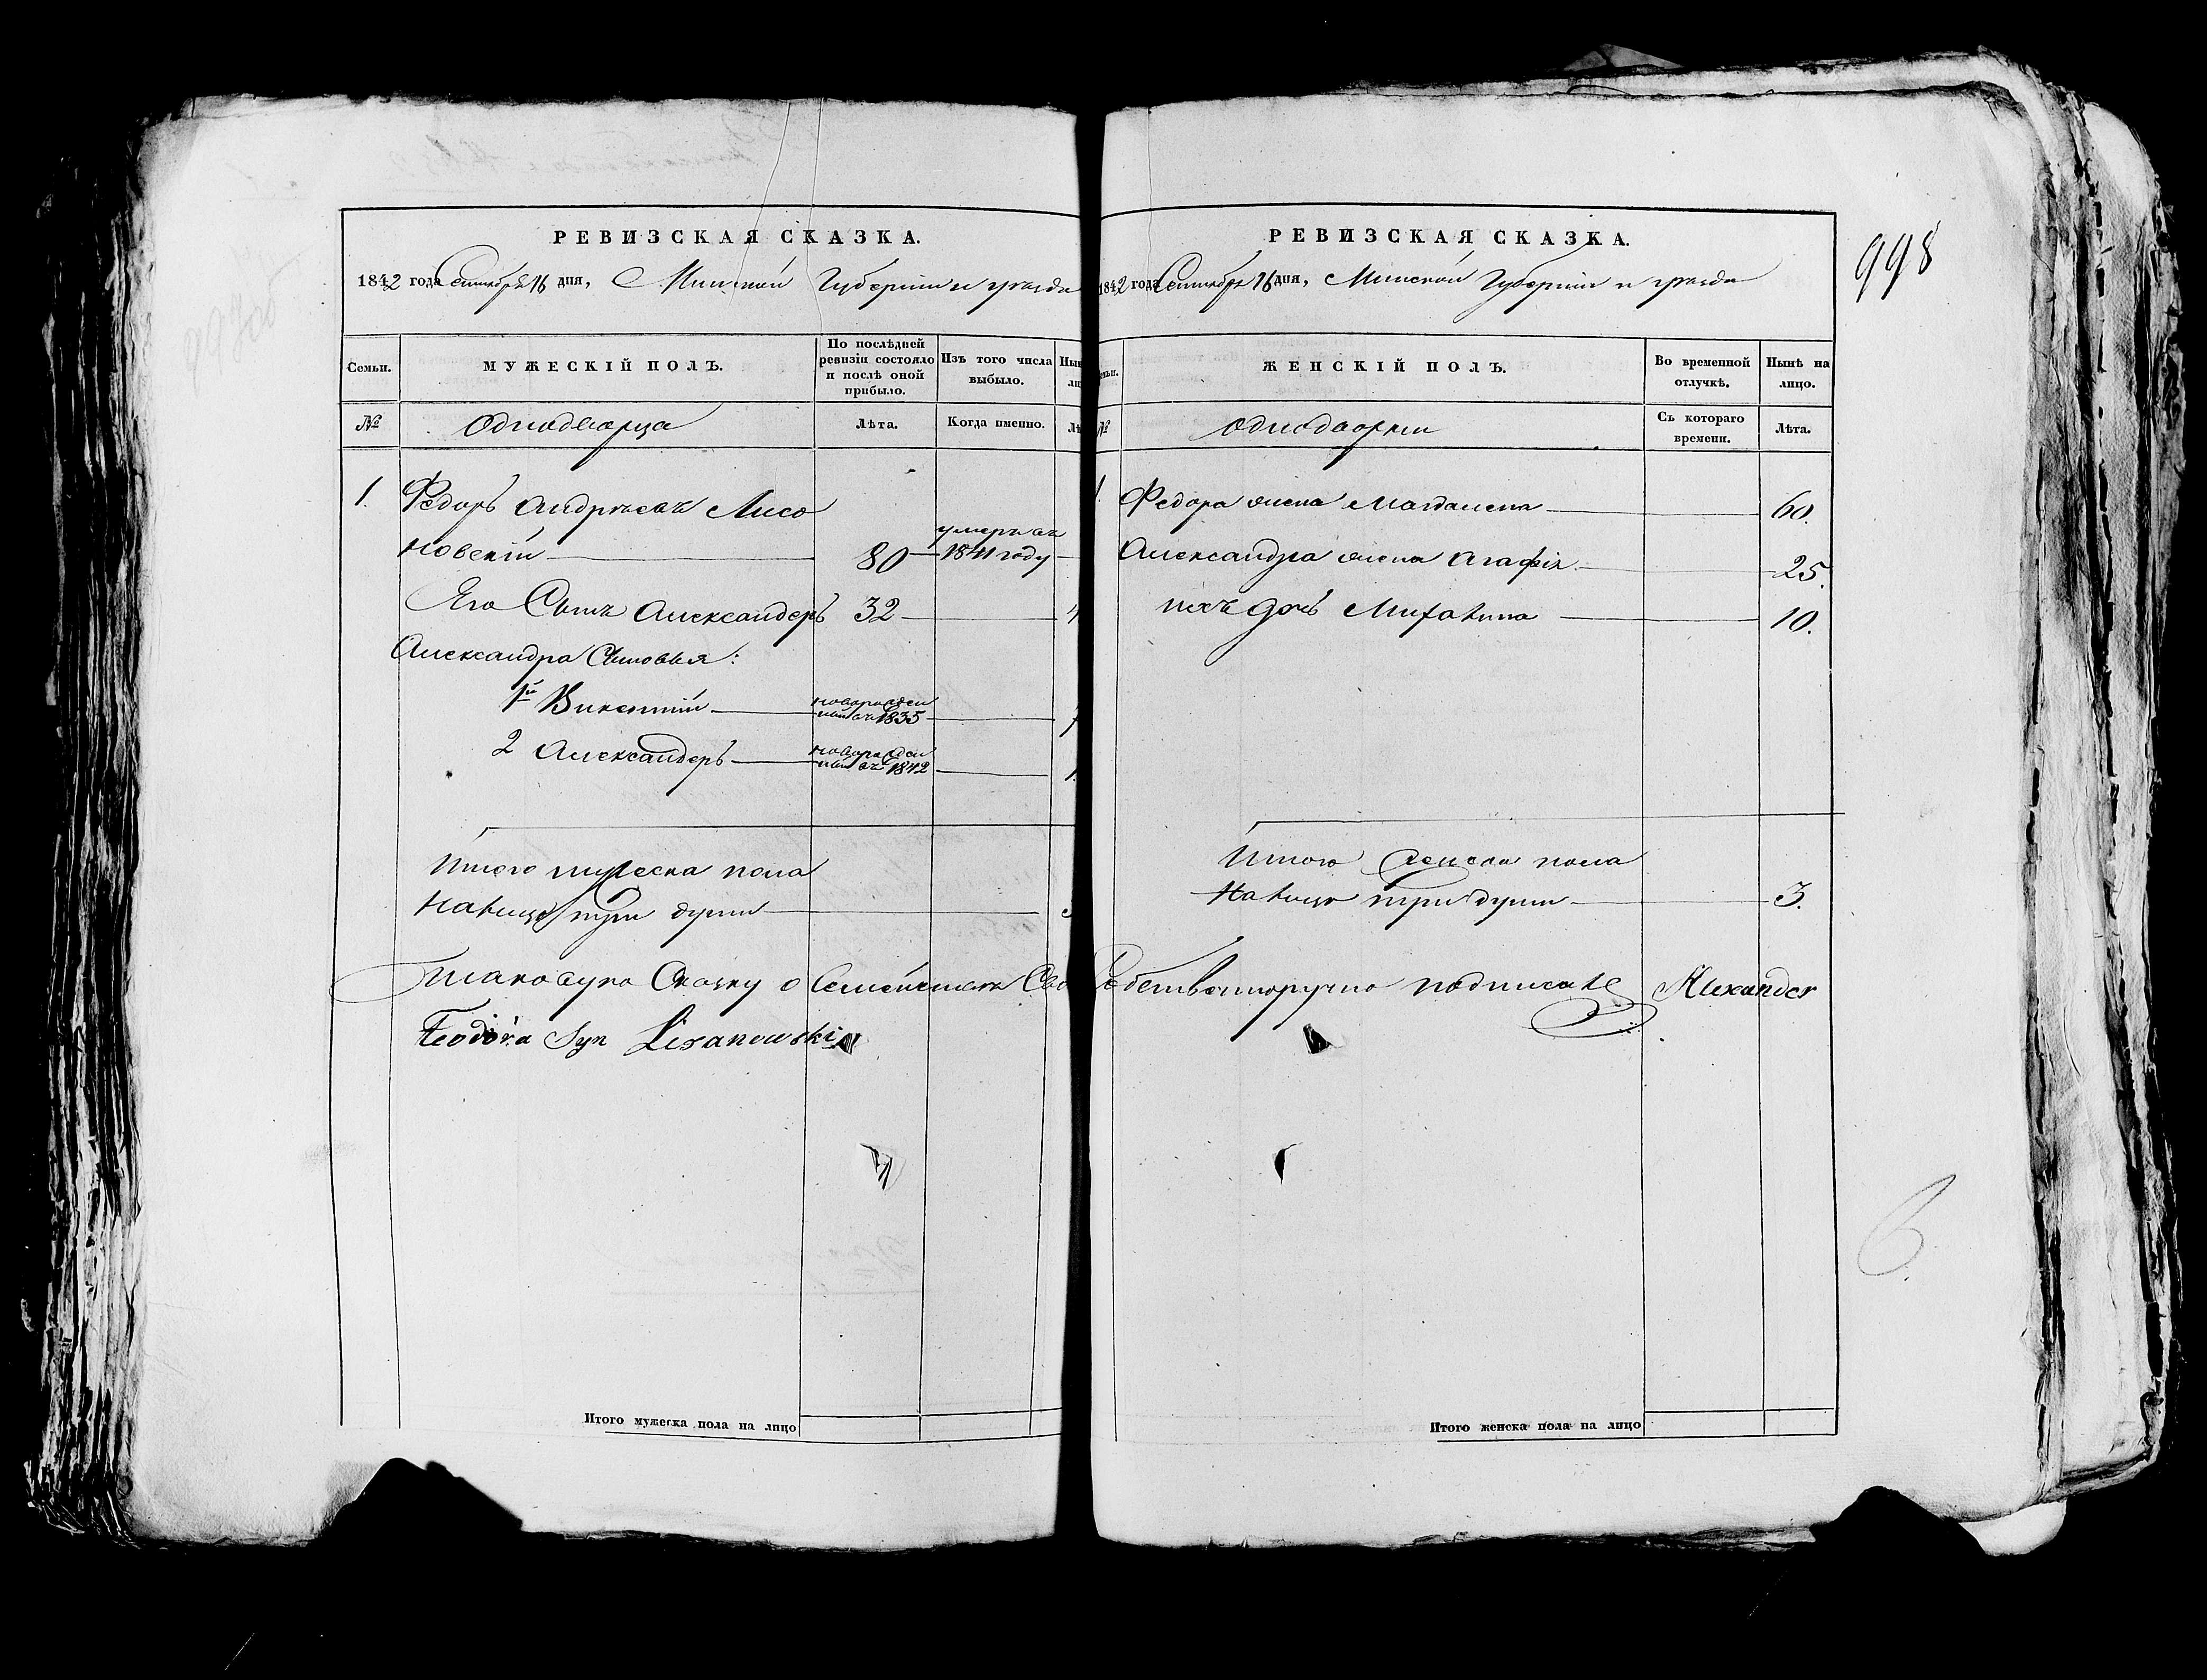 РЕВИЗСКАЯ СКАЗКА.
1842 года Сентября 16 дня, Минской Губернии и уезда
Семьи.
МУЖЕСКІЙ ПОЛЪ.
По послѣдней ревизіи состояло и послѣ оной прибыло.
Изъ того числа выбыло.
№
Однодворца
Лѣта.
Когда именно.
1. Федоръ Андреевъ Лисо
новскій 80 умеръ въ 1841 году
Его Сынъ Александеръ 32
Александра Сыновья:
1й Викентій новорожден ный въ 1835
2 Александеръ новорожден ный въ 1842
Итого мужеска пола
на лицо три души
Таковую Сказку о Семействе
Feodora Syn Lisanowski
Итого мужеска пола на лицо
998
РЕВИЗСКАЯ СКАЗКА.
1842 года Сентября 16 дня, Минской Губернии и уезда
ЖЕНСКІЙ ПОЛЪ.
Во временной отлучкѣ.
Нынѣ на лицо.
№
Однодворки
Съ котораго времени.
Лѣта.
1. Федора жена Магдалена 60.
Александра жена Агафія 25.
ихъ дочь Михалина 10.
Итого женска пола
на лицо три души 3.
Собственноручно подписалъ Alexander
6.
Итого женска пола на лицо